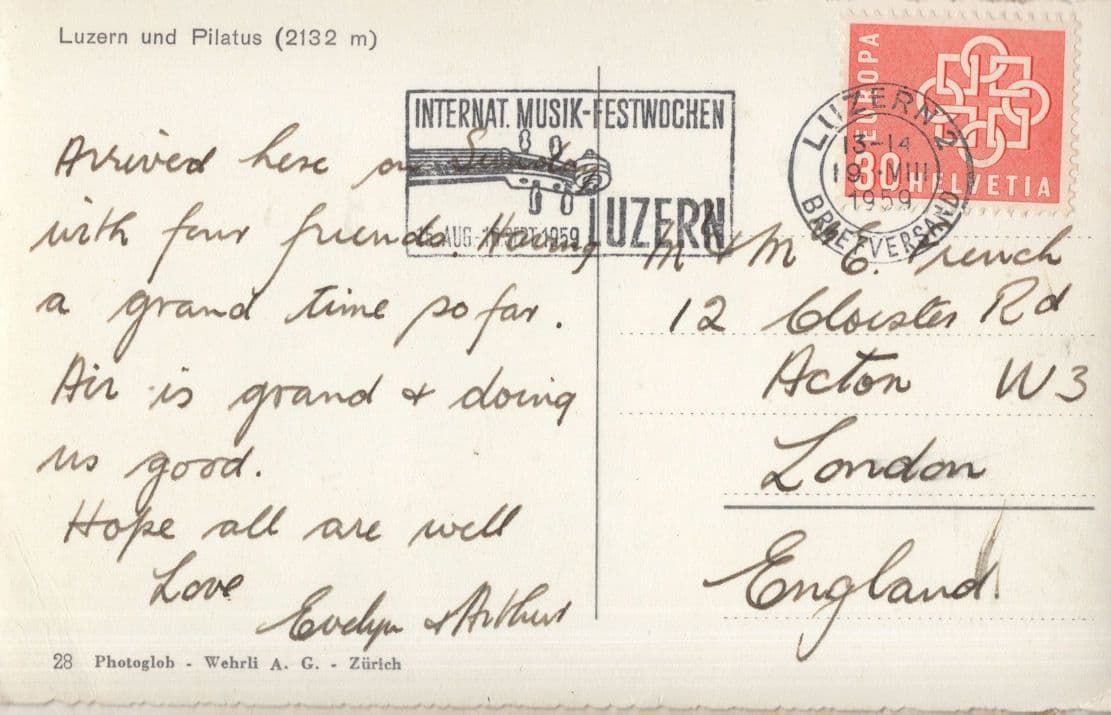 Luzern und Pilatus (2132 m)
EUROPA
30 HELVETIA
LUZERN 2
13-14
19. VIII
1959
BRIEFVERSAND
INTERNAT. MUSIK-FESTWOCHEN
15. AUG.- 10. SEPT. 1959
LUZERN
Arrived here on Sunday
with four friends. Having
a grand time so far.
Air is grand & doing
us good.
Hope all are well
Love
Evelyn & Arthur
M & M French
12 Cloister Rd
Acton W3
London
England
28 Photoglob - Wehrli A. G. - Zürich